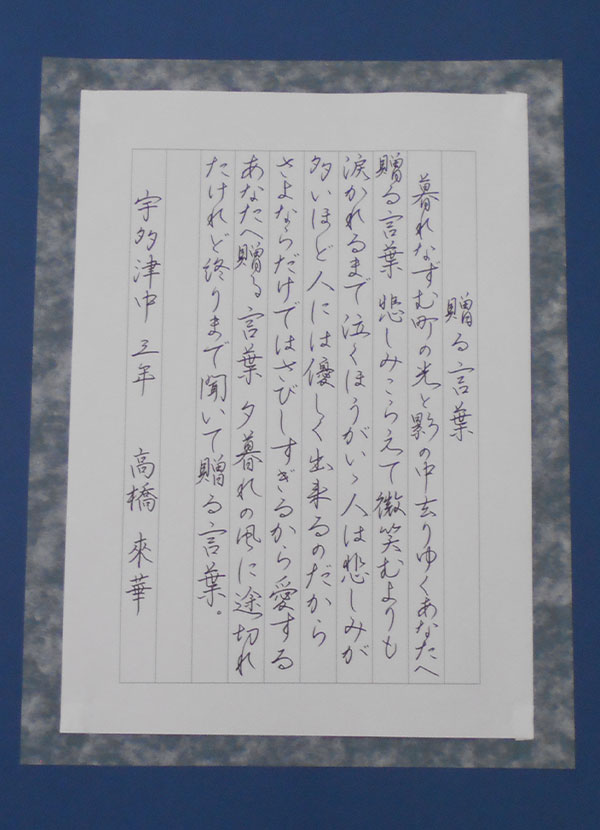 贈る言葉
暮れなずむ町の光と影の中去りゆくあなたへ
贈る言葉 悲しみこらえて微笑むよりも
涙かれるまで泣くほうがいゝ人は悲しみが
多いほど人には優しく出来るのだから
さよならだけではさびしすぎるから愛する
あなたへ贈る言葉 夕暮れの風に途切れ
たけれど終りまで聞いて贈る言葉。
宇多津中 三年 高橋 來華